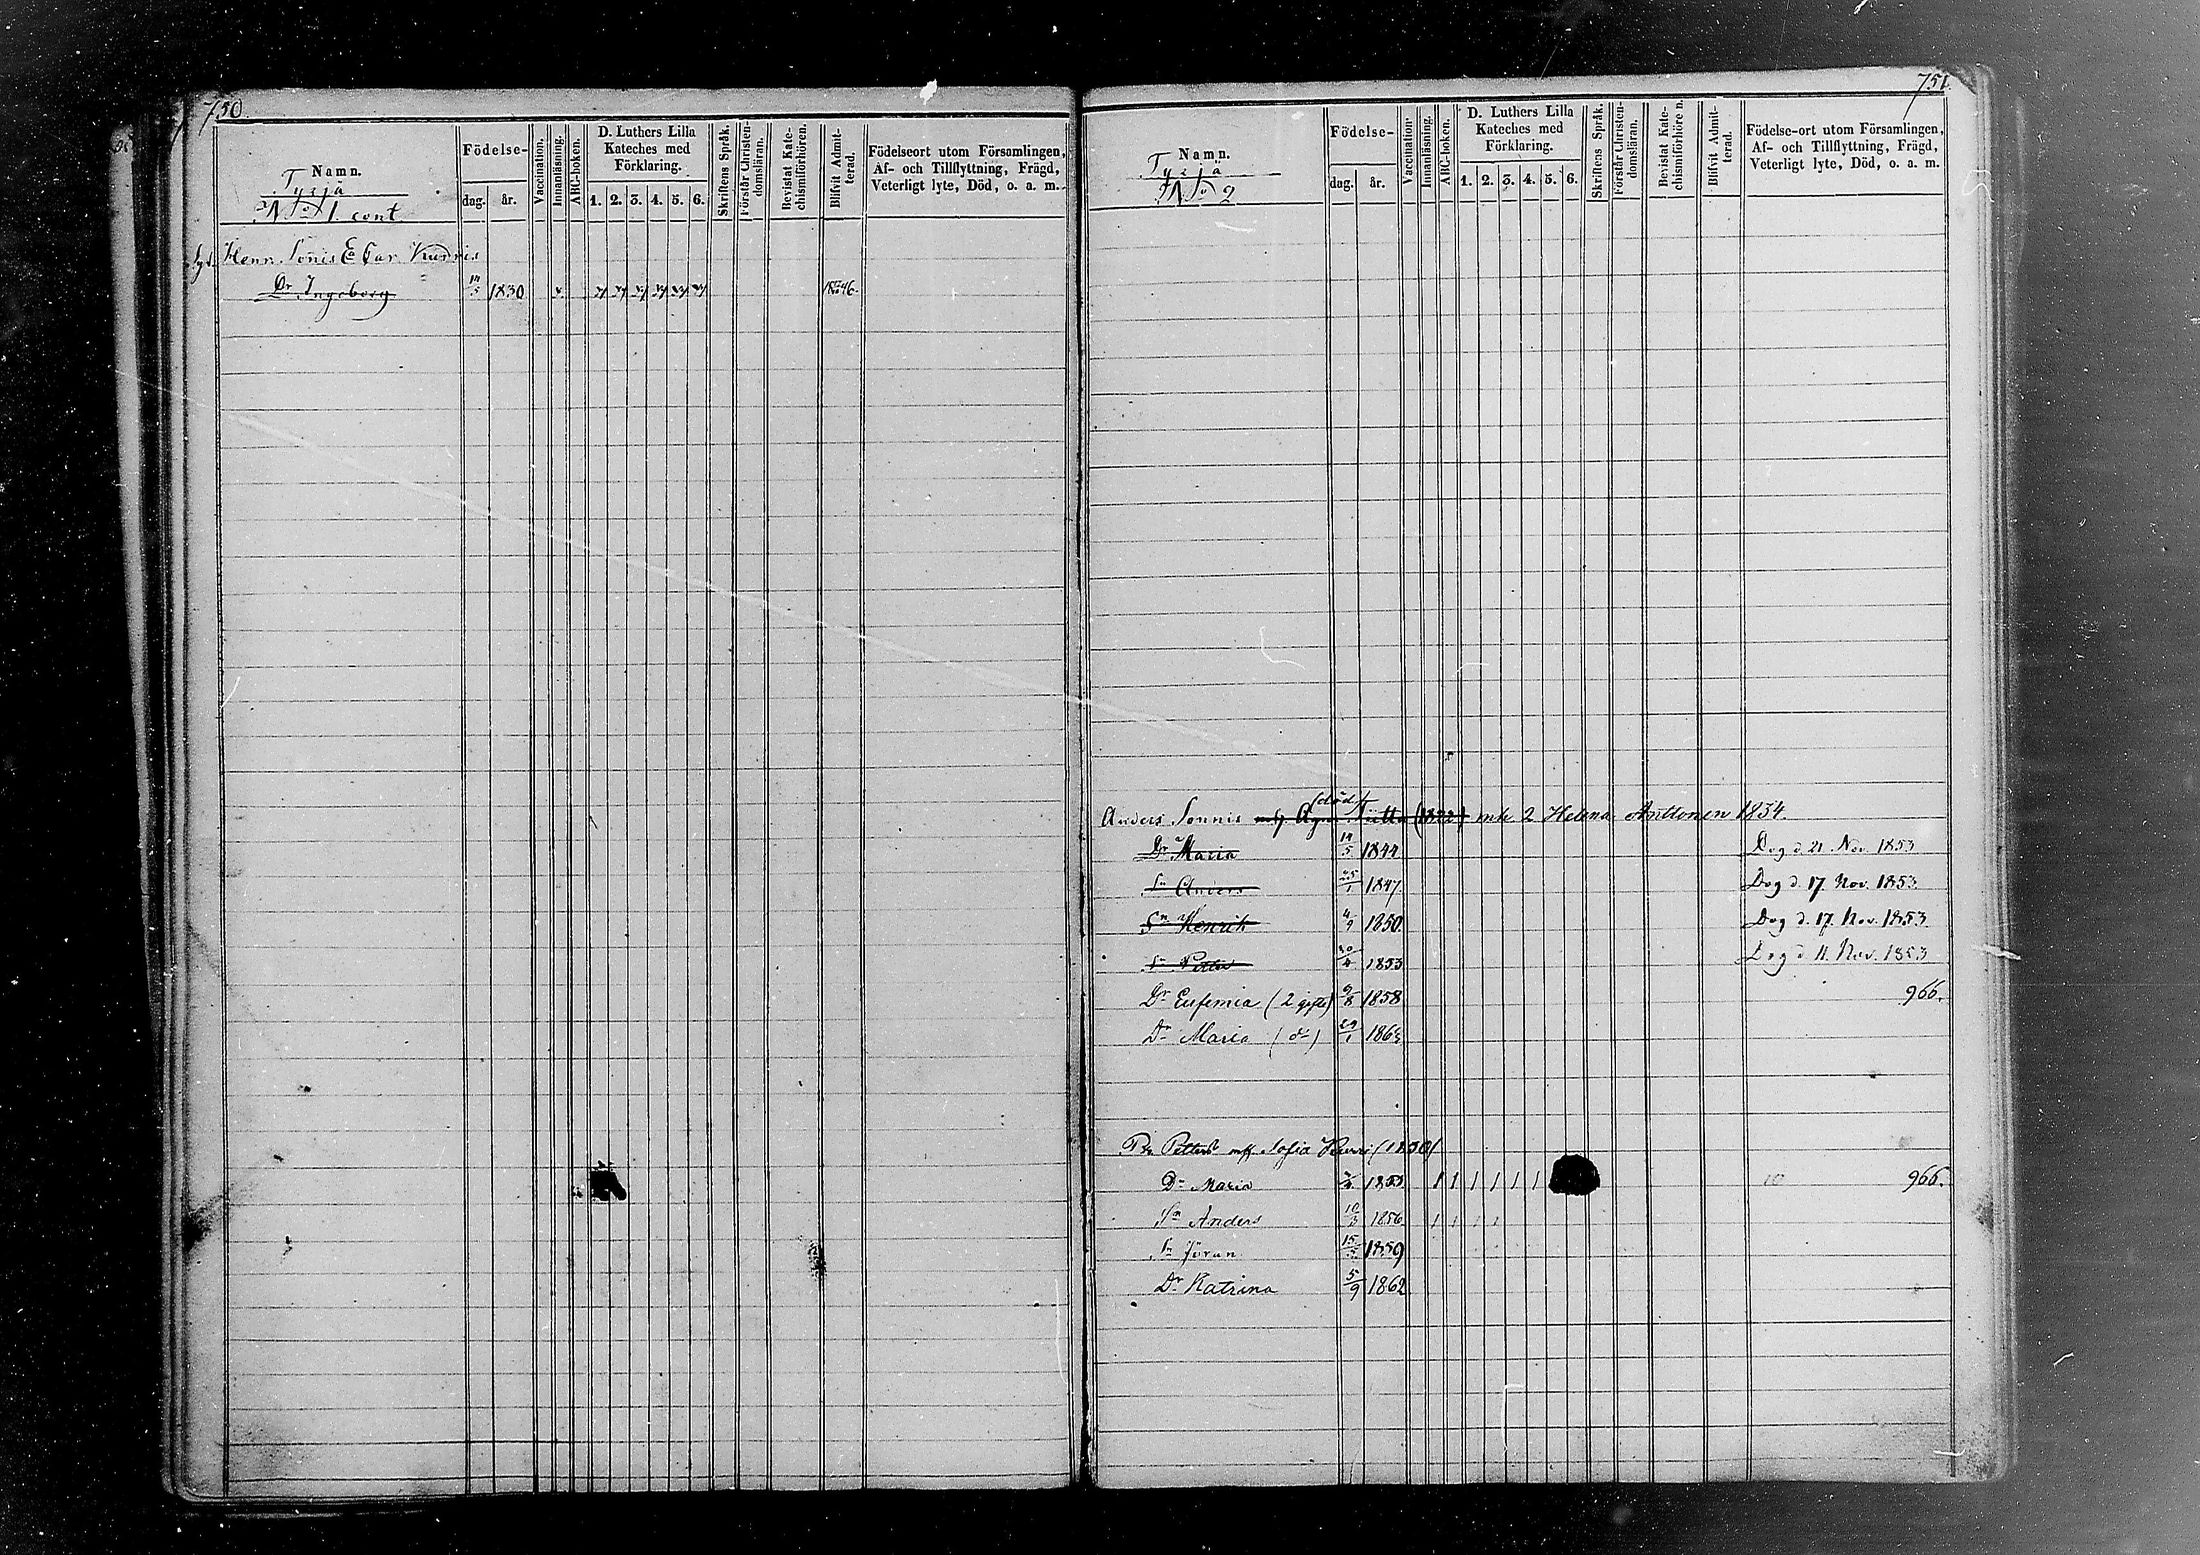 750.
Namn.
Födelse-
dag. år.
Vaccination.
Innanläsning.
ABC-boken.
D. Luthers Lilla
Kateches med
Förklaring.
1. 2. 3. 4. 5. 6.
Skriftens Språk.
Förstår Christen-
domsläran.
Bevistat Kate-
chismiförhören.
Blifvit Admit-
terad.
Födelseort utom Församlingen,
Af- och Tillflyttning, Frägd,
Veterligt lyte, Död, o. a. m.
Tyrjä
No 1. cont
Henr. Sonis
Dr Ingeborg 1830
751.
Namn.
Födelse-
dag. år.
Vaccination
Innanläsning.
ABC-boken.
D. Luthers Lilla
Kateches med
Förklaring.
1. 2. 3. 4. 5. 6.
Skriftens Språk.
Förstår Christen-
domsläran.
Bevistat Kate-
chismiförhören.
Blifvit Admit-
terad.
Födelse-ort utom Församlingen,
Af- och Tillflyttning, Frägd,
Veterligt lyte, Död, o. a. m.
Tyrjä
No 2
(död)
Anders Sonnis (1822) 2 Helena Anttonen 1834.
Dr Maria 1844 Dog d. 21. Nov. 1853
Sn Anders 1847 Dog d. 17. Nov. 1853
Sn Henrik 4/9 1850 Dog d. 17. Nov. 1853
Sn Petter 1853 Dog d. 11. Nov. 1853
Dr Eufemia (2 gifte) 9/8 1858 966.
Dr Maria 29/1
Petter Sofia (1830)
Dr Maria 1853 1 1 1 1 1 1 966.
Sn Anders 10/3 1856 1 1 1 1
Sn Jöran 15/5 1859
Dr Katrina 5/9 1862